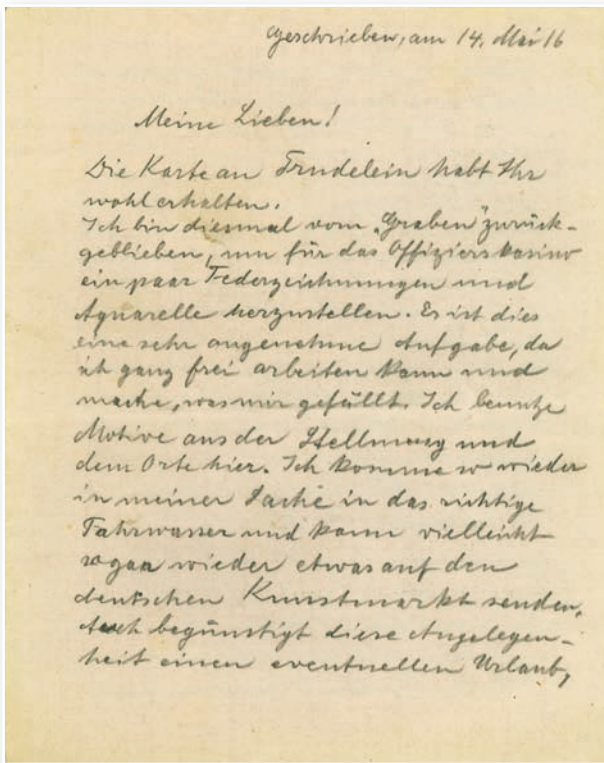 geschrieben, am 14. Mai 16
Meine Lieben!
Die Karte an Trudelein habt Ihr
wohl erhalten.
Ich bin diesmal vom „Graben“ zurück-
geblieben, um für das Offizierskasino
ein paar Federzeichnungen und
Aquarelle herzustellen. Es ist dies
eine sehr angenehme Aufgabe, da
ich ganz frei arbeiten kann und
mache, was mir gefällt. Ich benutze
Motive aus der Stellung und
dem Orte hier. Ich komme so wieder
in meiner Sache in das richtige
Fahrwasser und kann vielleicht
sogar wieder etwas auf den
deutschen Kunstmarkt senden.
Auch begünstigt diese Angelegen-
heit einen eventuellen Urlaub,